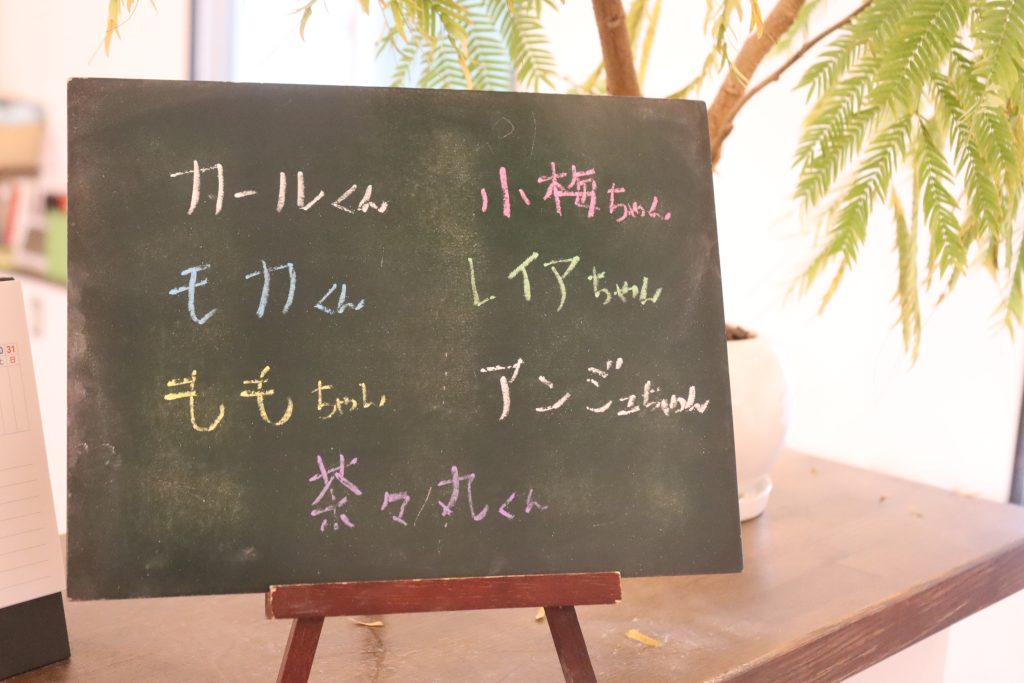 カールくん 小梅ちゃん
モカくん レイアちゃん
ももちゃん アンジュちゃん
茶々丸くん
31
日